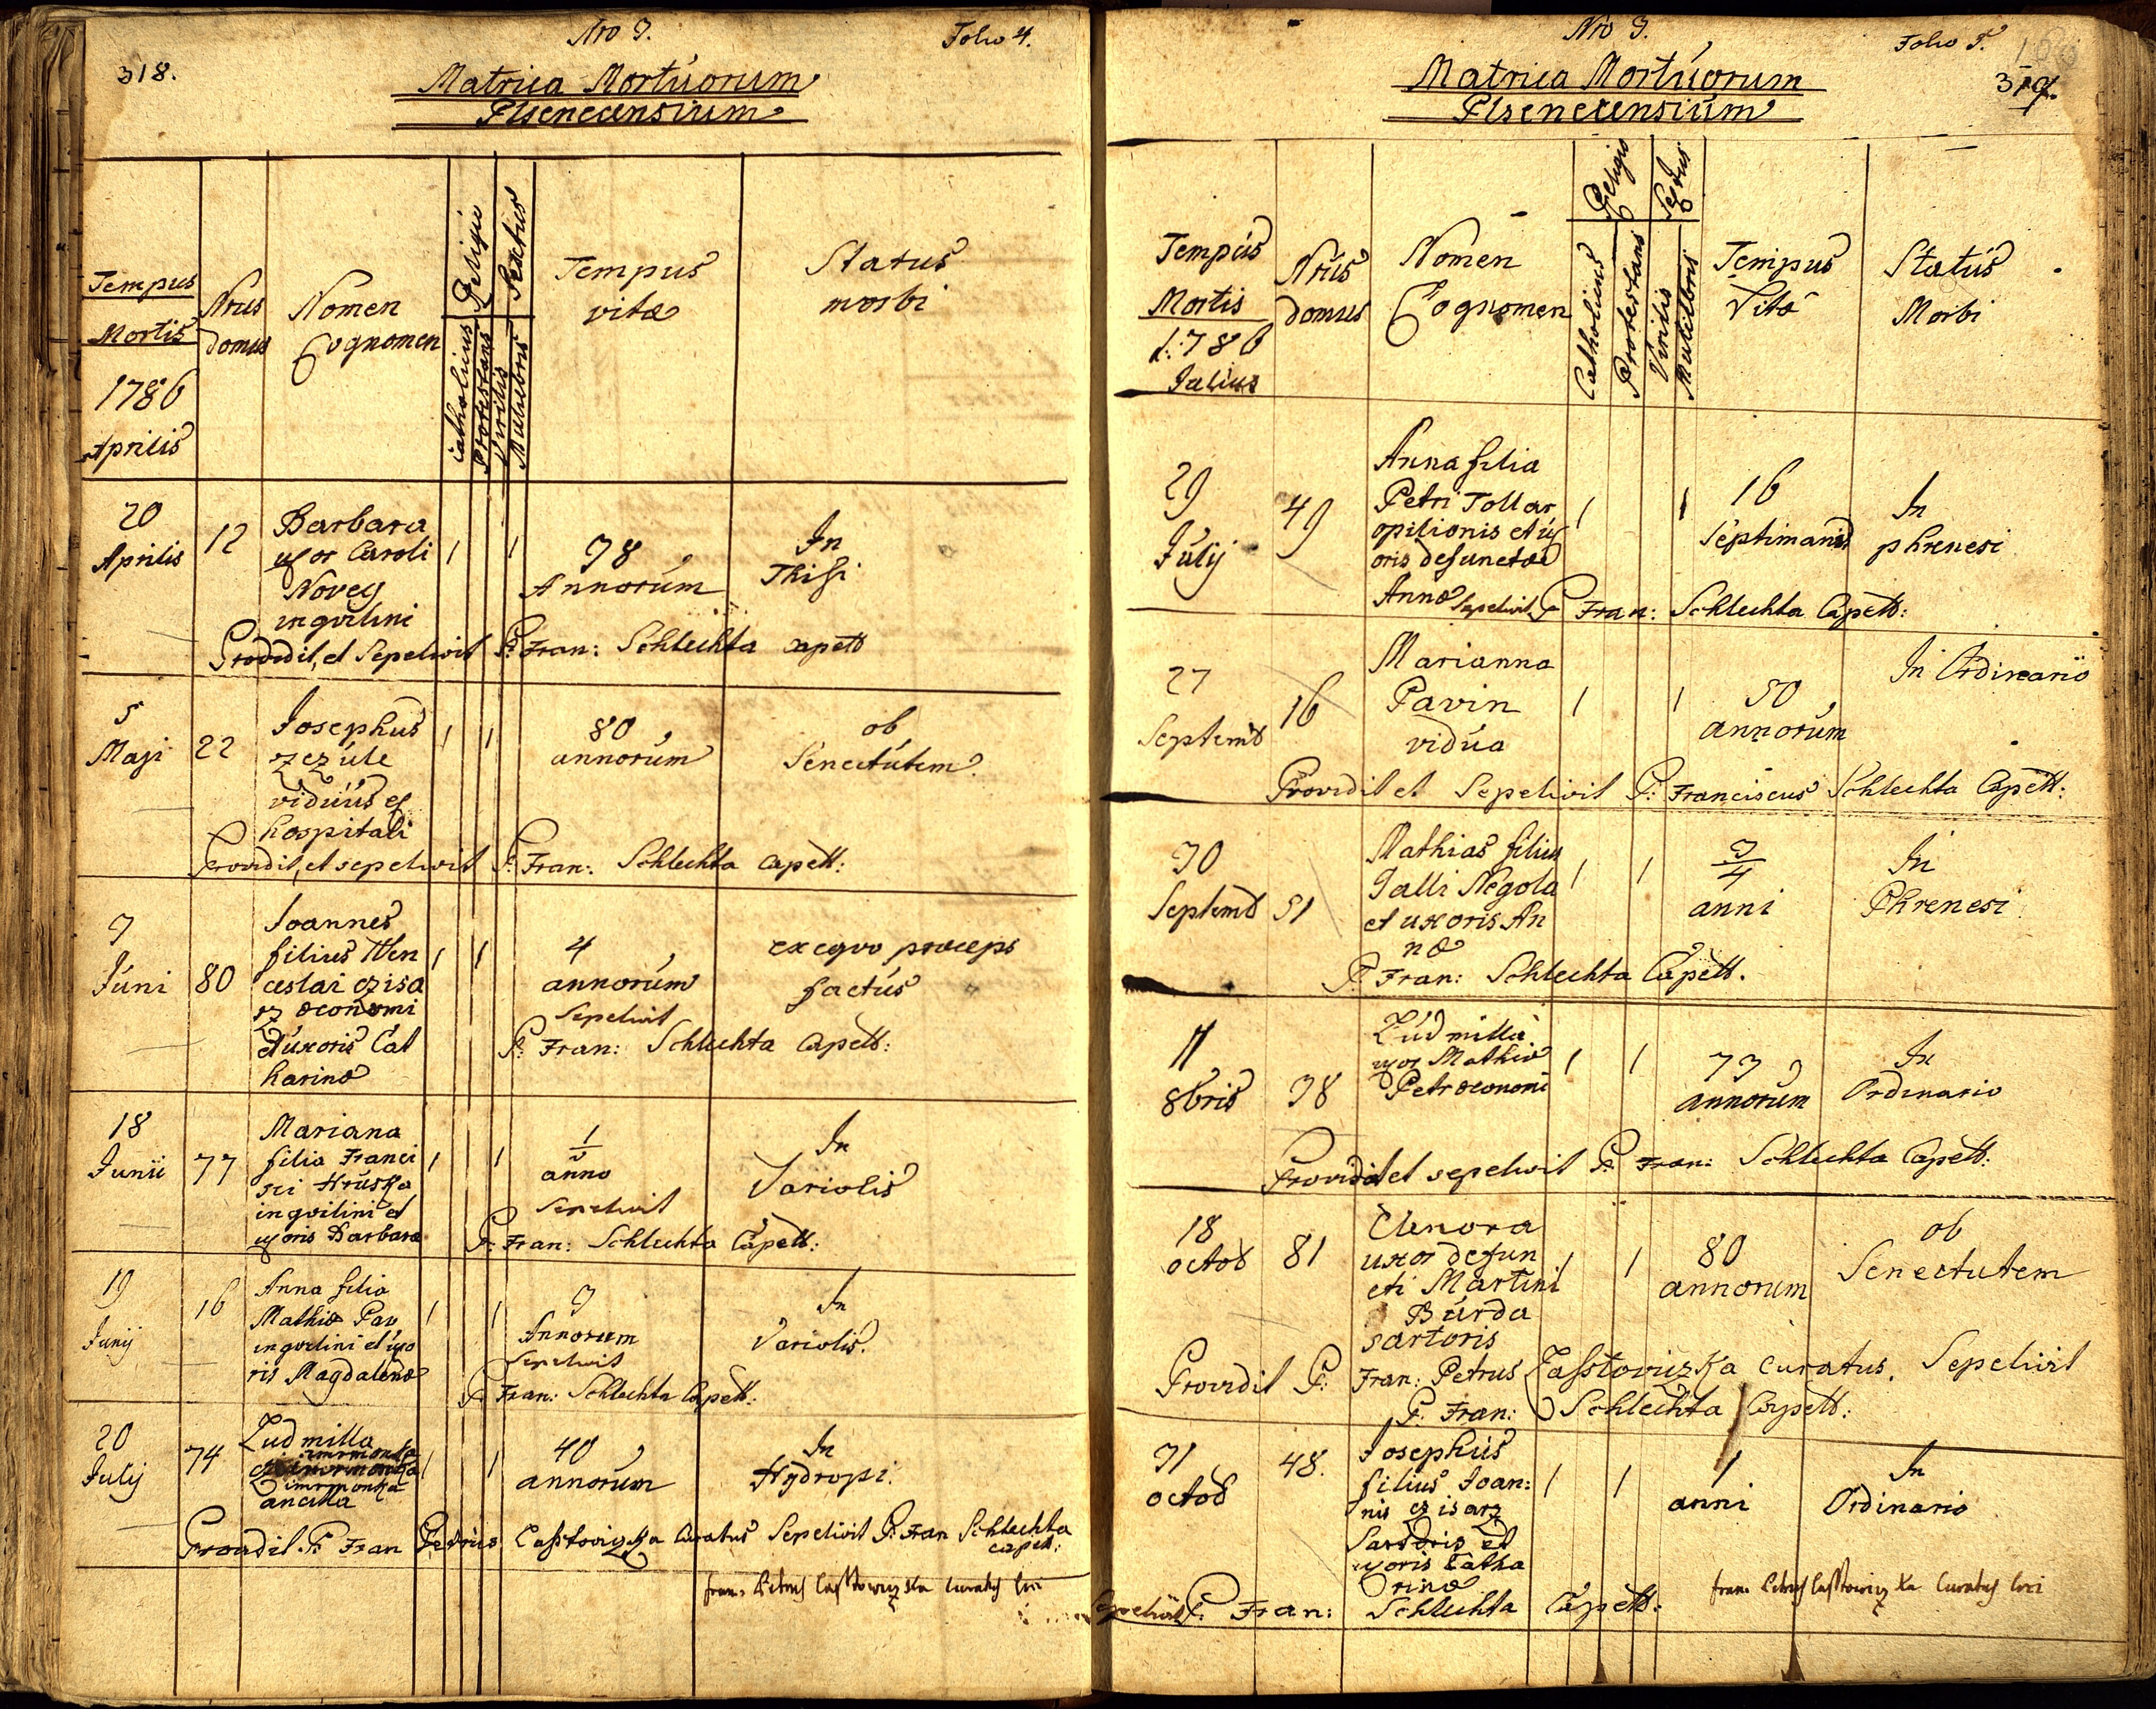 318.
Nro 3.
Folio 4.
Matrica Mortúorum
Plsenecensium
Tempus
Mortis
1786
Aprilis
Nrus
domus
Nomen
Cognomen
Religio
Catholicus
Protestans
Sexus
Virilis
Muliebris
Tempus
vitæ
Status
morbi
20
Aprilis
12
Barbara
uxor Caroli
Novey
inqvilini
1
1
38
Annorúm
In
Thisi
Providit, et Sepelivit P. Fran: Schlechta Capell
5
Maji
22
Josephus
czezúle
vidúús ex
hospitali
1
1
80
annorúm
ob
Senectútem.
Providit, et sepelivit P. Fran: Schlechta Capell:
3
Júni
80
Joannes
filius Wen
ceslai czisa
rz œconomi
et úxoris Cat
harinæ
1
1
4
annorúm
ex eqvo præceps
factús
Sepelivit
P. Fran: Schlechta Capell:
18
Junii
77
Mariana
filia Franci
sci Hrúska
inqvilini et
uxoris Barbaræ
1
1
anno
In
Variolis
Sepelivit
P. Fran: Schlechta Capell:
19
Junij
16
Anna filia
Mathiæ Pav
inqvilini et úxo
ris Magdalenæ
1
1
3
Annorum
In
Variolis.
Sepelivit
P. Fran: Schlechta Capell:
20
Julij
74
Ludmilla
ancilla
1
1
40
annorúm
In
Hÿdropsi.
Providit P. Fran Petrus Casstovizka Curatus Sepelivit P. Fran Schlechta
capell:
fran: Petrus Casstowiczka Curatus loci
Nro 3.
Folio 5.
319.
Matrica Mortúorum
Plsenecensiúm
Tempús
Mortis
1786
Julius
Nrús
domus
Nomen
Cognomen
Religio
Catholicus
Protestans
Sexus
Virilis
Muliebris
Tempus
Vitæ
Statús
Morbi
29
Júlij
49
Anna filia
Petri Tollar
opilionis et úx
oris defunctæ
Annæ
1
1
16
Septimanis
In
phrenesi
Sepelivit P Fran: Schlechta Capell:
27
Septemb
16
Marianna
Pavin
vidúa
1
1
50
annorúm
In Ordinario
Providit et Sepelivit P. Franciscus Schlechta Capell:
30
Septemb
51
Mathias filius
Galli Negola
et uxoris An
næ
1
1
3/4
anni
In
Phrenesi
P Fran: Schlechta Capell.
11
8bris
38
Lúdmilla
uxor Mathiæ
Petr œconomi
1
1
73
annorúm
In
Ordinario
Providit et sepelivit P. Fran: Schlechta Capell:
18
octob
81
Elenora
uxor defun
cti Martini
Búrda
sartoris
1
1
80
annorum
ob
Senectutem
Providit P: Fran: Petrus Casstoviczka Curatus. Sepelivit
P. Fran: Schlechta Capell:
31
octob
48.
Josephús
filiús Joan:
nis czisarz
Sartoris et
uxoris Catha
rinæ
1
1
1
anni
In
Ordinario
Sepelivit P. Fran: Schlechta Capell:
fran: Petrus Casstowiczka Curatus loci